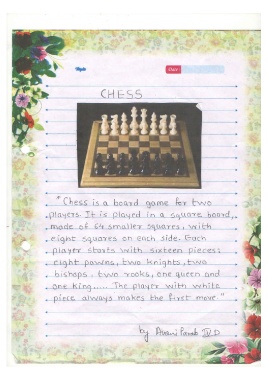 Date :
CHESS
"Chess is a board game for two
players. It is played in a square board,
made of 64 smaller squares, with
eight squares on each side. Each
player starts with sixteen pieces:
eight pawns, two knights, two
bishops, two rooks, one queen and
one king..... The player with white
piece always makes the first move"
by Avani IV D